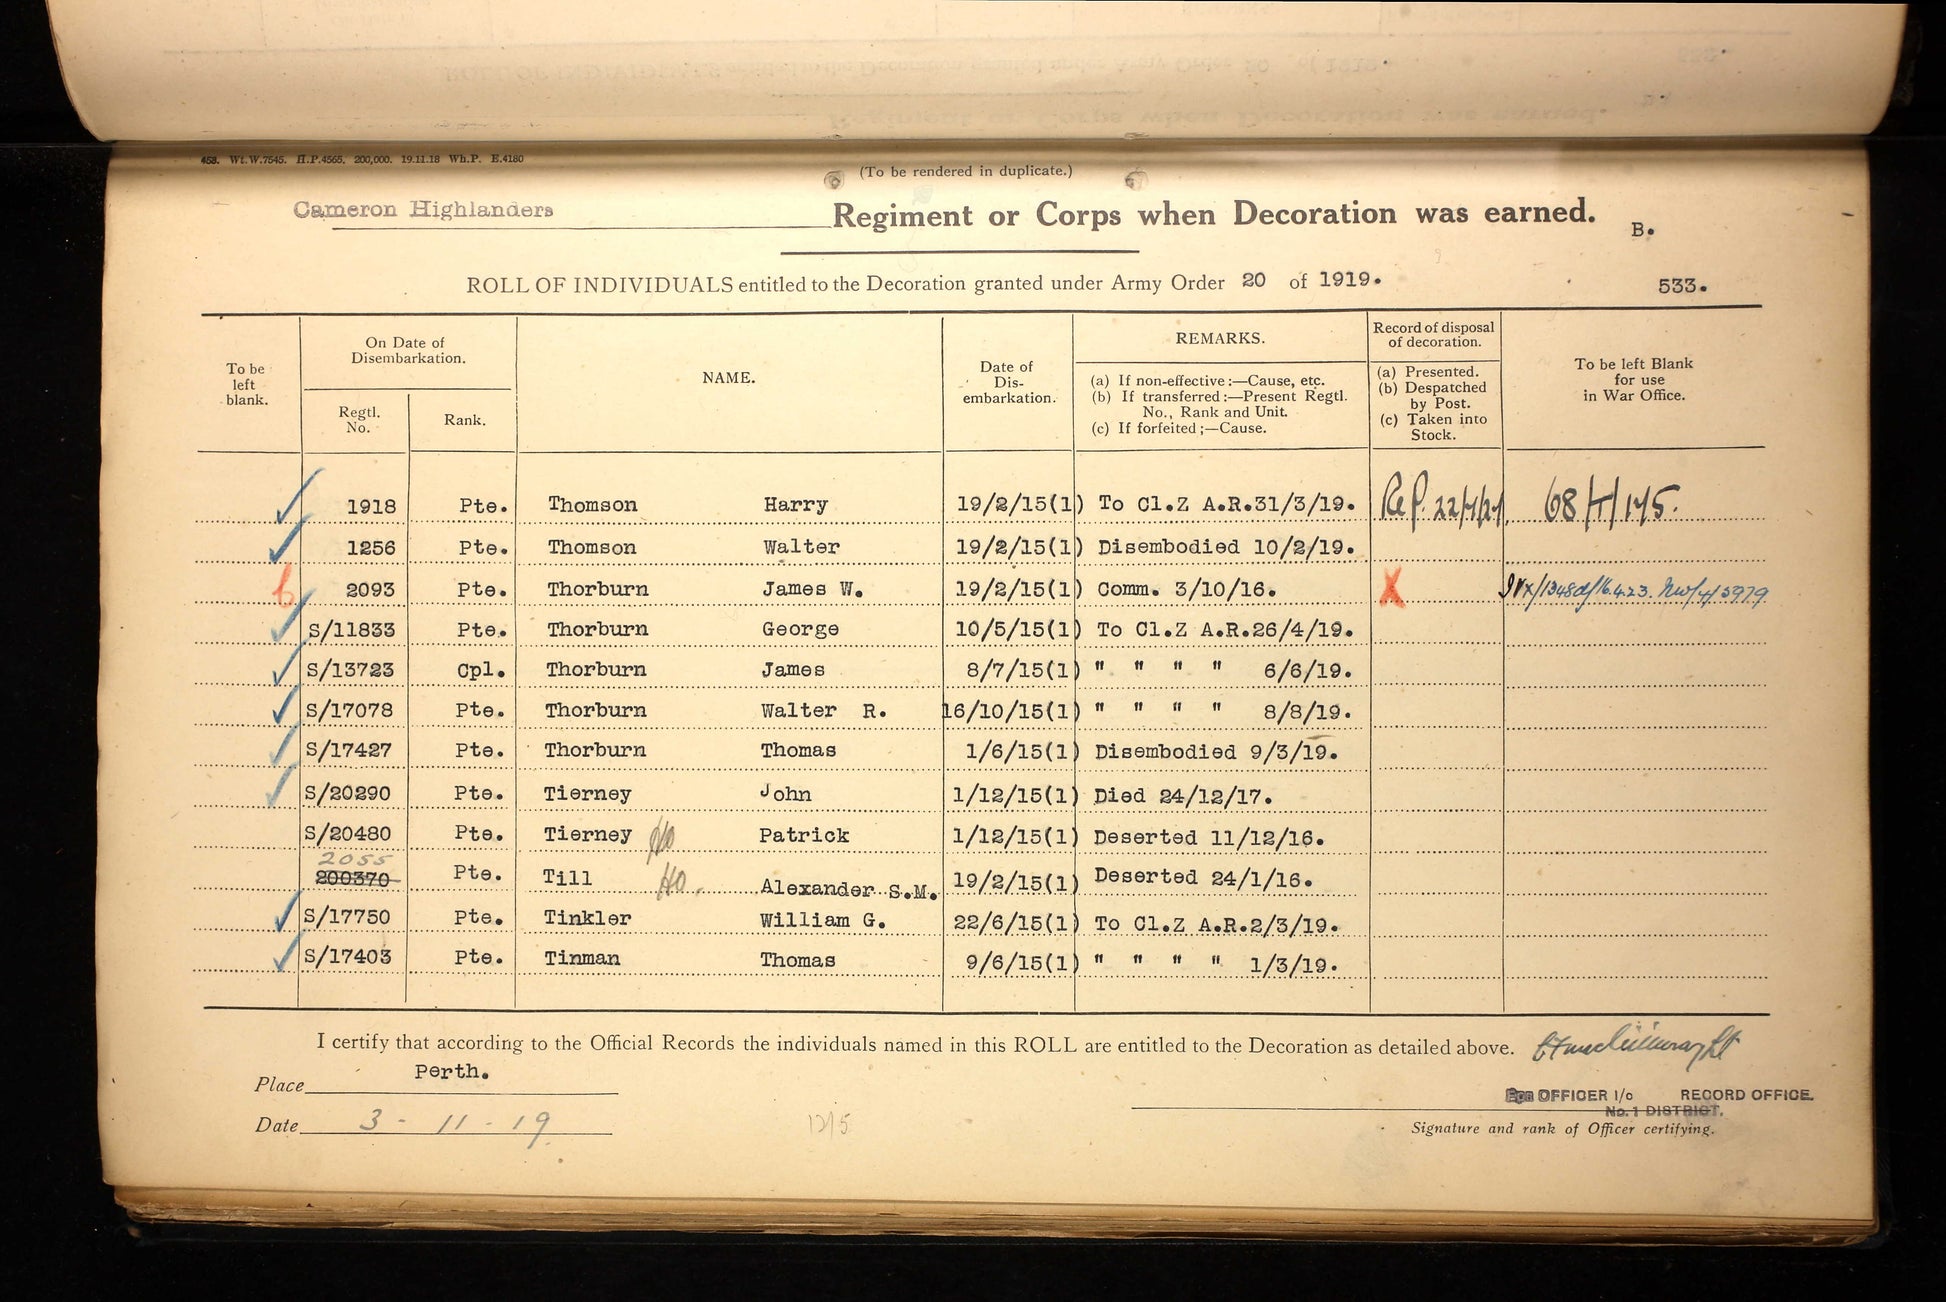 458. Wt.W.7545. H.P.4565. 200,000. 19.11.18 Wh.P. E.4180
(To be rendered in duplicate.)
Cameron Highlanders Regiment or Corps when Decoration was earned. B.
ROLL OF INDIVIDUALS entitled to the Decoration granted under Army Order 20 of 1919. 533.
To be left blank.
On Date of Disembarkation.
Regtl. No.
Rank.
NAME.
Date of Dis-embarkation.
REMARKS.
(a) If non-effective:—Cause, etc.
(b) If transferred:—Present Regtl. No., Rank and Unit.
(c) If forfeited;—Cause.
Record of disposal of decoration.
(a) Presented.
(b) Despatched by Post.
(c) Taken into Stock.
To be left Blank for use in War Office.
1918 Pte. Thomson Harry 19/2/15(1) To Cl.Z A.R.31/3/19. 68/T/175.
1256 Pte. Thomson Walter 19/2/15(1) Disembodied 10/2/19.
2093 Pte. Thorburn James W. 19/2/15(1) Comm. 3/10/16. X
S/11833 Pte. Thorburn George 10/5/15(1) To Cl.Z A.R.26/4/19.
S/13723 Cpl. Thorburn James 8/7/15(1) " " " " 6/6/19.
S/17078 Pte. Thorburn Walter R. 16/10/15(1) " " " " 8/8/19.
S/17427 Pte. Thorburn Thomas 1/6/15(1) Disembodied 9/3/19.
S/20290 Pte. Tierney John 1/12/15(1) Died 24/12/17.
S/20480 Pte. Tierney No Patrick 1/12/15(1) Deserted 11/12/16.
2055
200370 Pte. Till No. Alexander S.M. 19/2/15(1) Deserted 24/1/16.
S/17750 Pte. Tinkler William G. 22/6/15(1) To Cl.Z A.R.2/3/19.
S/17403 Pte. Tinman Thomas 9/6/15(1) " " " " 1/3/19.
I certify that according to the Official Records the individuals named in this ROLL are entitled to the Decoration as detailed above.
Place Perth.
For OFFICER I/c RECORD OFFICE.
No. 1 DISTRICT.
Date 3 - 11 - 19
Signature and rank of Officer certifying.